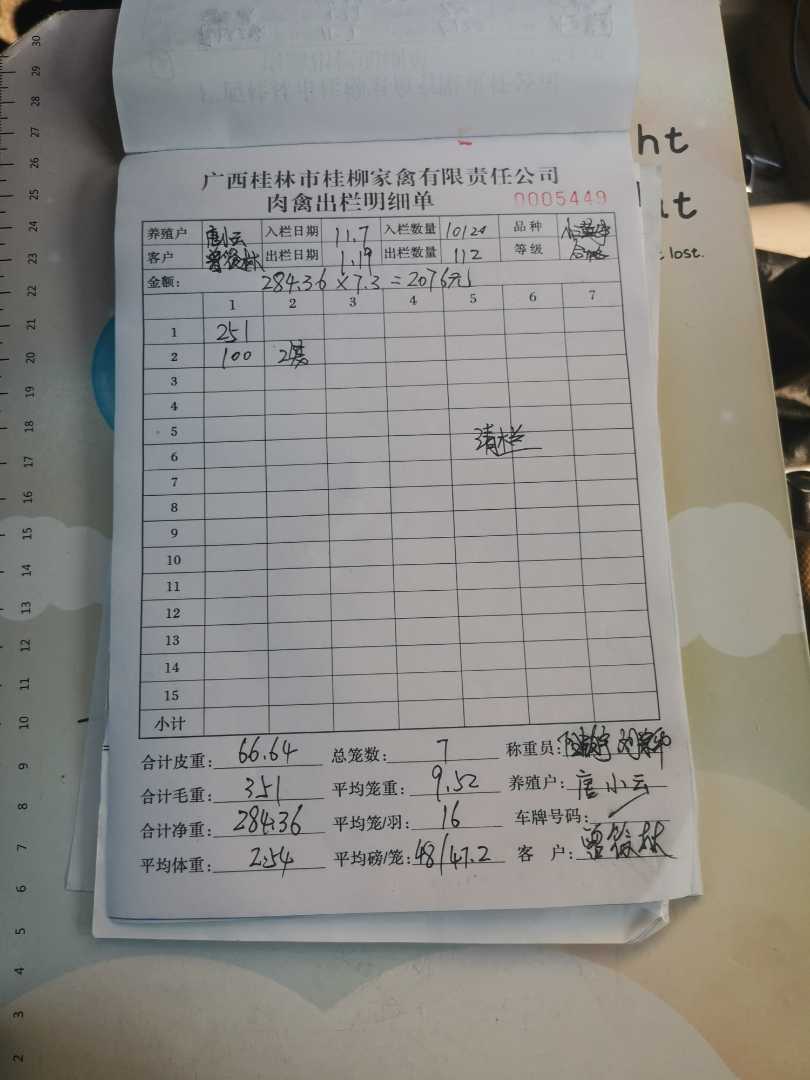 广西桂林市桂柳家禽有限责任公司
肉禽出栏明细单 0005449
养殖户 唐小云 入栏日期 11.7 入栏数量 10124 品种
客户 出栏日期 1.19 出栏数量 112 等级 合格
金额: 284.36×7.3=2076元
1 2 3 4 5 6 7
1 251
2 100
3
4
5
6 清栏
7
8
9
10
11
12
13
14
15
小计
合计皮重: 66.64 总笼数: 7 称重员:
合计毛重: 351 平均笼重: 9.52 养殖户: 唐小云
合计净重: 284.36 平均笼/羽: 16 车牌号码:
平均体重: 2.54 平均磅/笼: 48/47.2 客户:
ht
t lost.
30
29
28
27
26
25
24
23
22
21
20
19
18
17
16
15
14
13
12
11
10
9
8
7
6
5
4
3
2